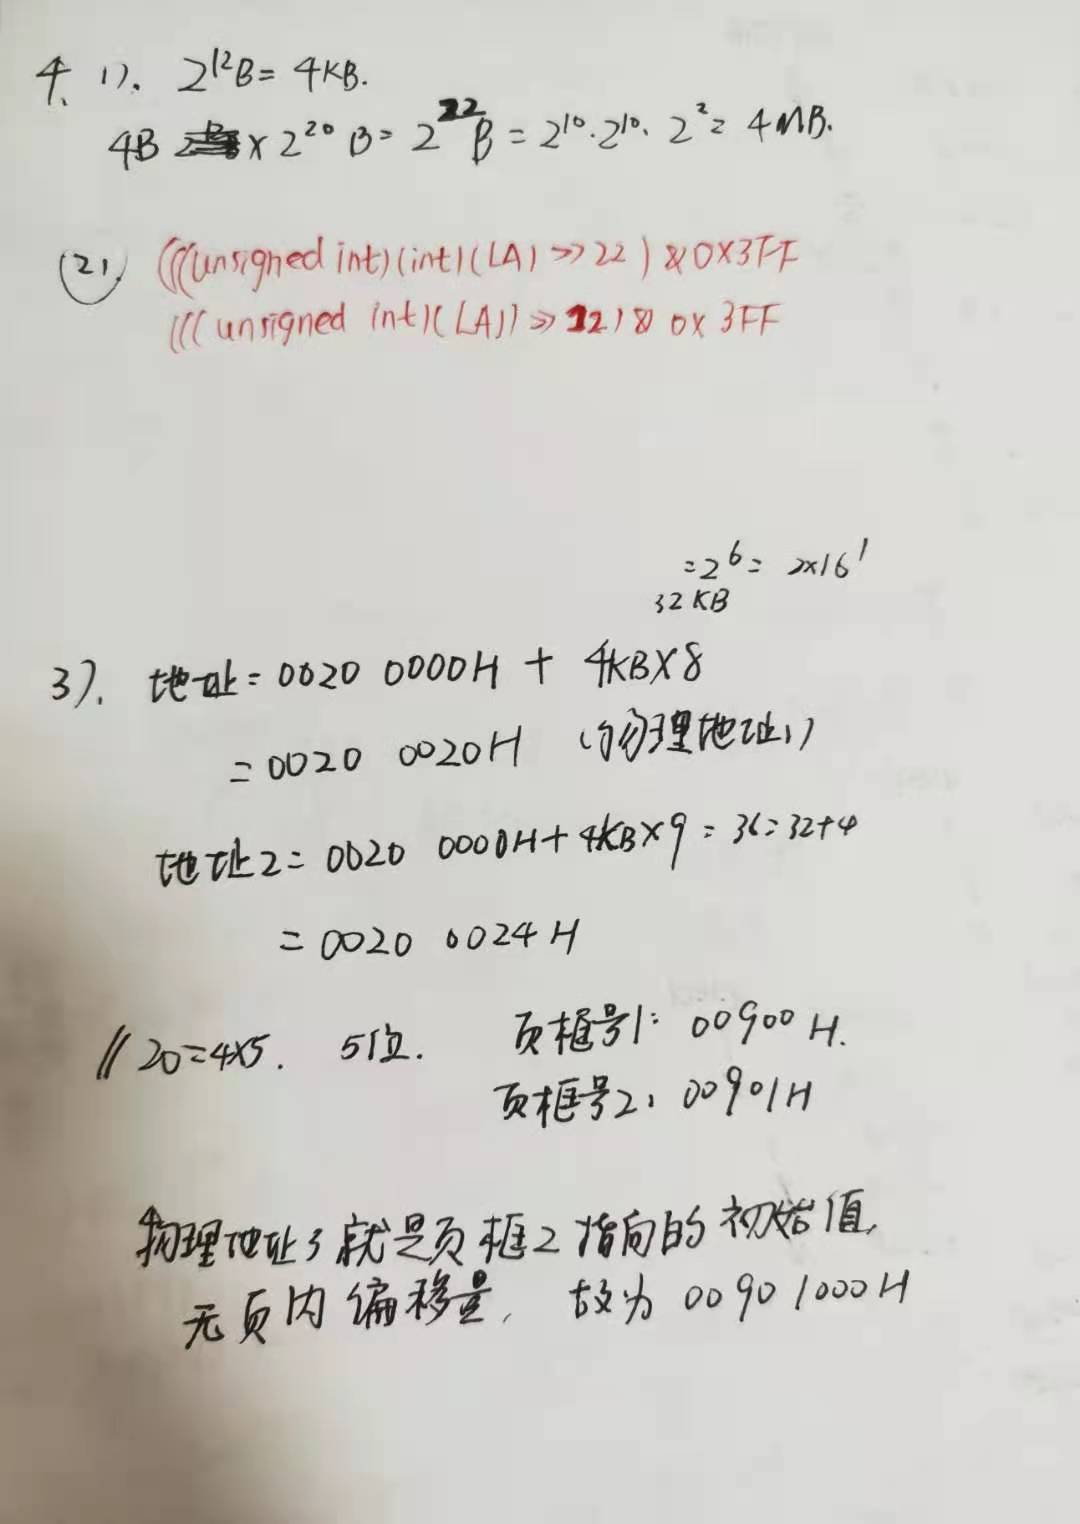 4、1). 2¹²B = 4KB.
4B × 2²⁰ B = 2²²B = 2¹⁰·2¹⁰·2² = 4MB.
(2). (((unsigned int)(int)(LA) >> 22) & 0X3FF
(((unsigned int)(LA)) >> 12) & 0X 3FF
= 2⁶ = 2×16¹
32KB
3). 地址 = 0020 0000H + 4KB×8
= 0020 0020H (物理地址1)
地址2 = 0020 0000H + 4KB×9 = 36 = 32+4
= 0020 0024H
// 20=4×5. 5位. 页框号1: 00900 H.
页框号2: 00901H
物理地址3就是页框2指向的初始值,
无页内偏移量, 故为 0090 1000H